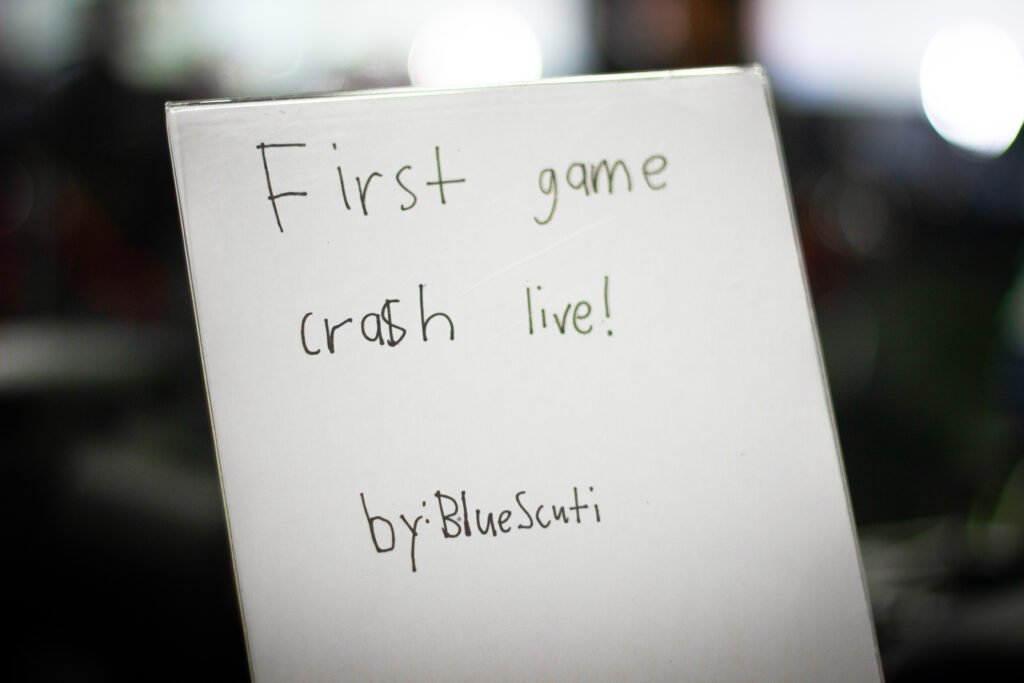 First game
crash live!
by:BlueScuti